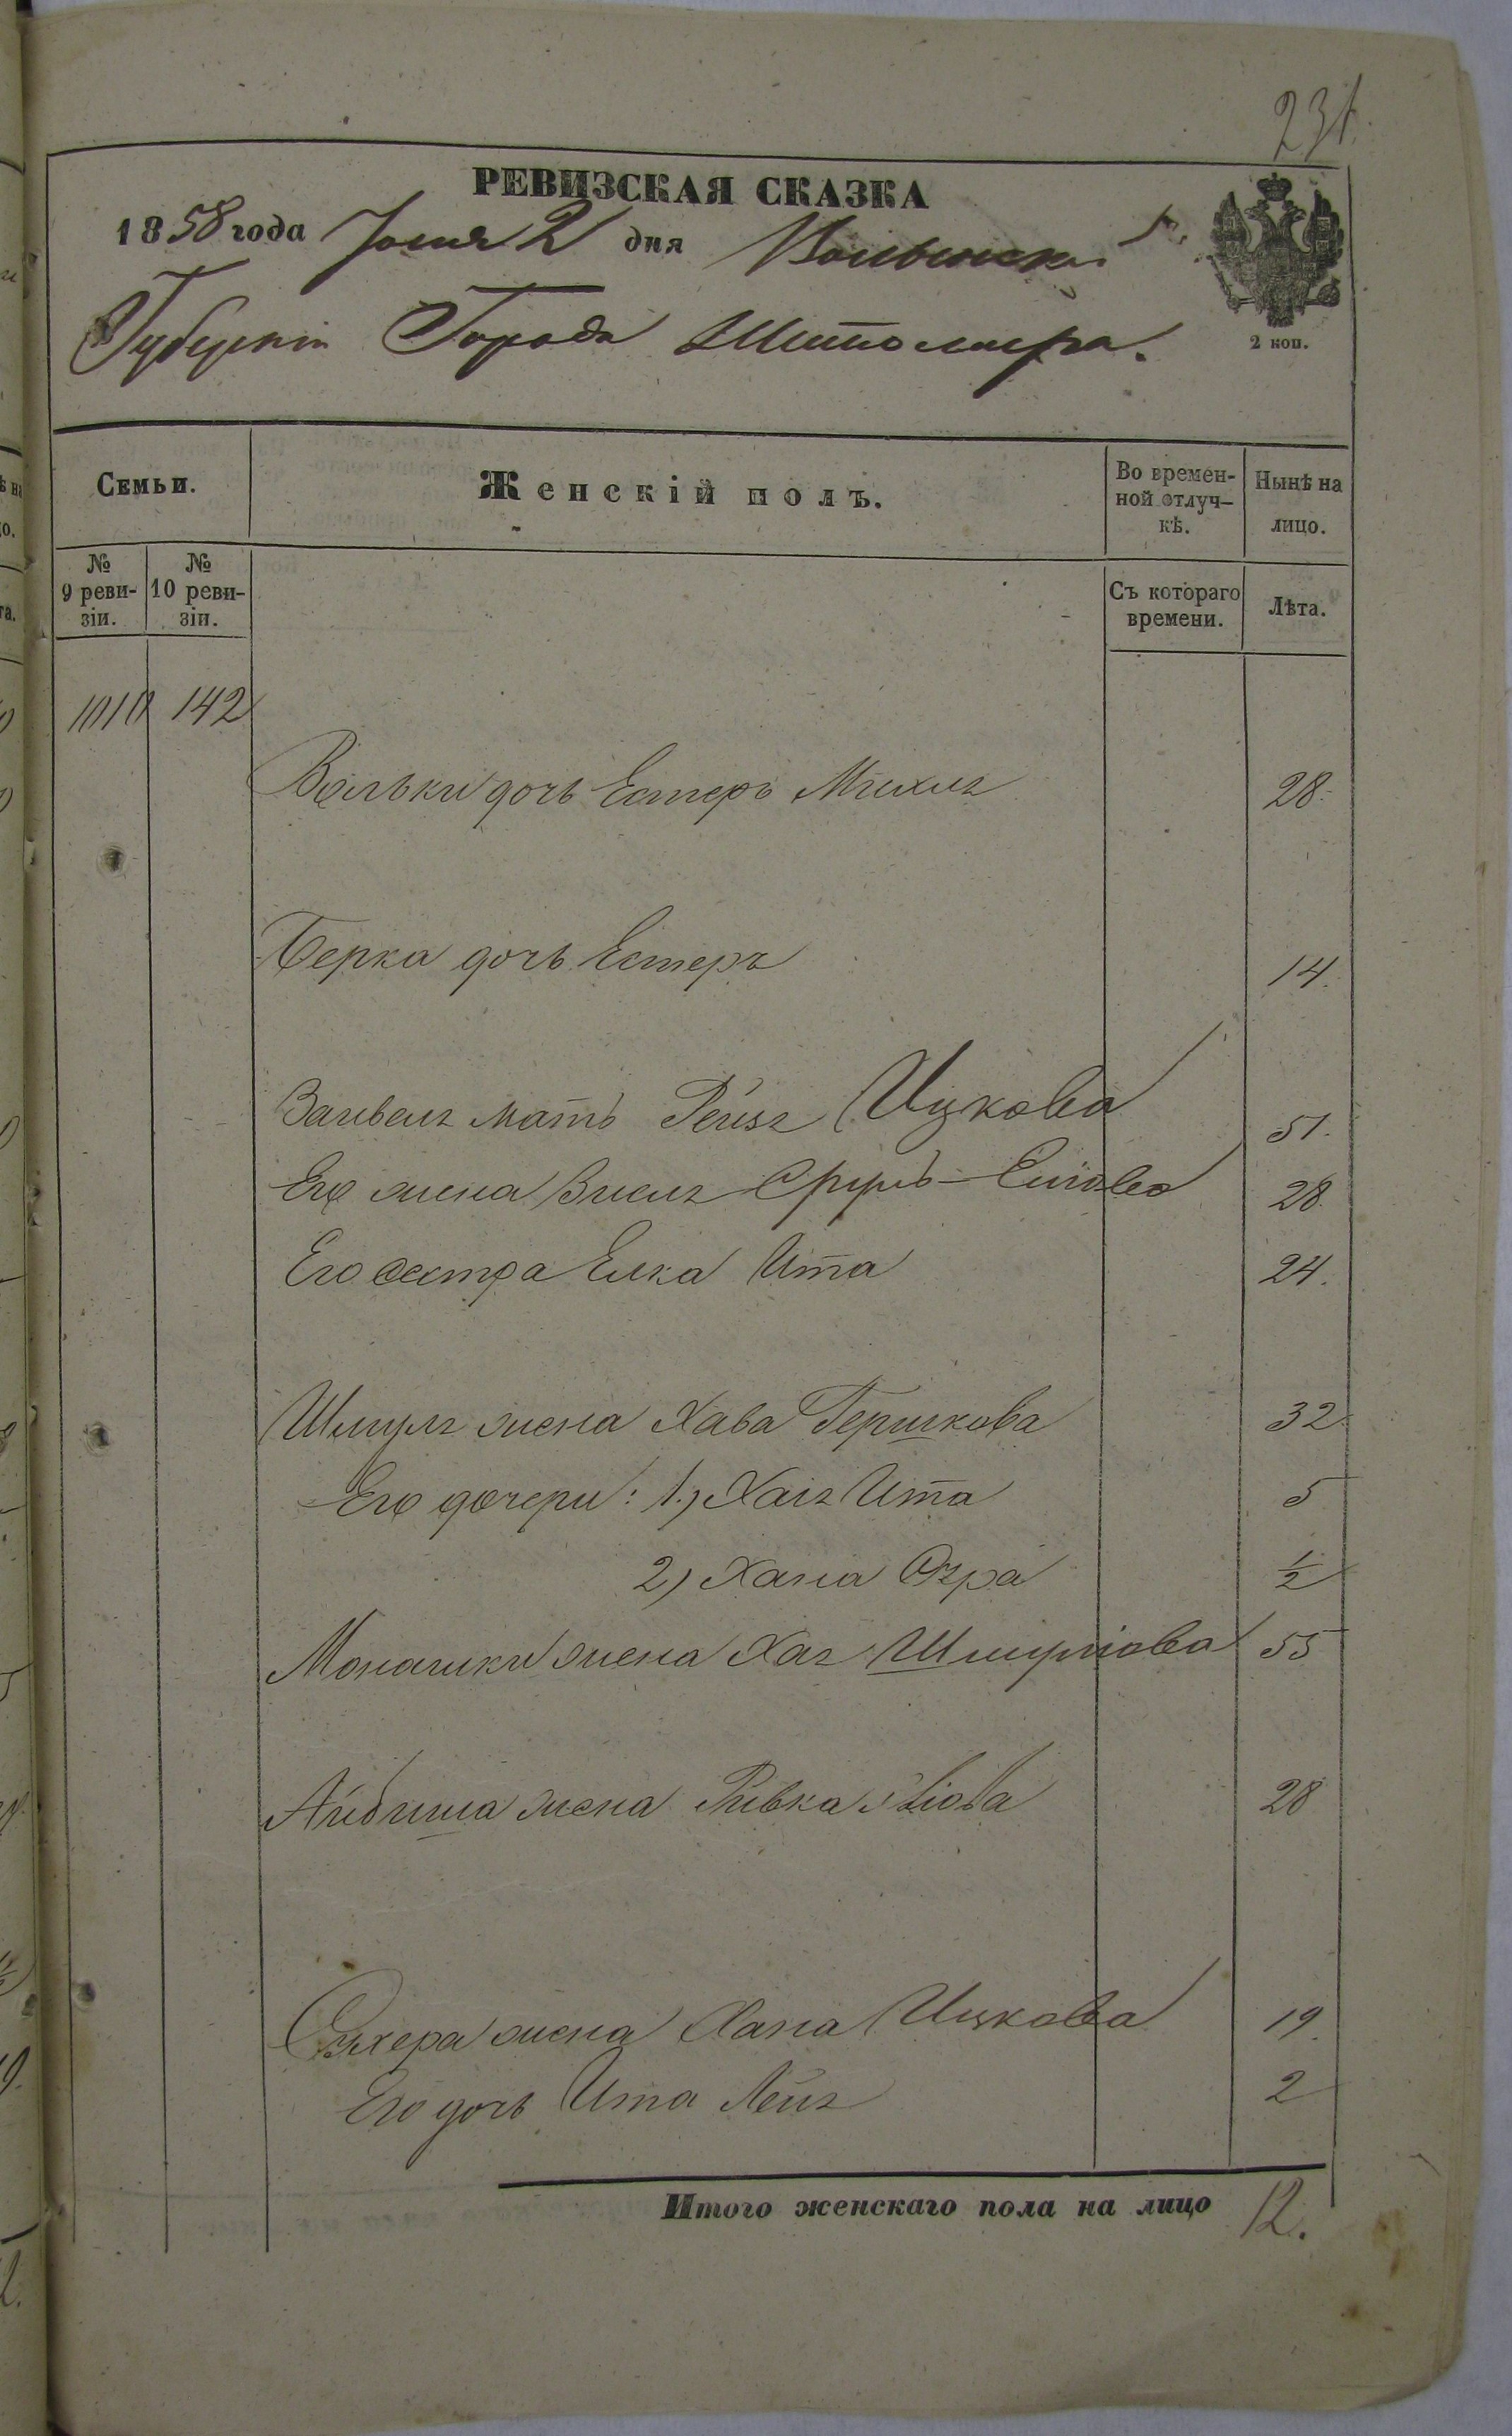 231.
РЕВИЗСКАЯ СКАЗКА
1858 года Іюня 2 дня Волынской
Губерніи Города Житомира.
2 коп.
Семьи.
Женскій полъ.
Во времен-
ной отлуч-
кѣ.
Нынѣ на
лицо.
№
9 реви-
зіи.
№
10 реви-
зіи.
Съ котораго
времени.
Лѣта.
1010 142
Вольки дочь Естеръ 28.
Берка дочь Естеръ 14.
мать Рейзя Ицкова 51.
Его жена Сруль- 28.
Его сестра Елка Ита 24.
Шмуля жена Хава Гершкова 32
Его дочери: 1.) Хая Ита 5
2) Хана 1/2
жена Хая Шмулiова 55
жена Ривка 28
жена Хана Ицкова 19.
Его дочь Ита Лея 2
Итого женскаго пола на лицо 12.